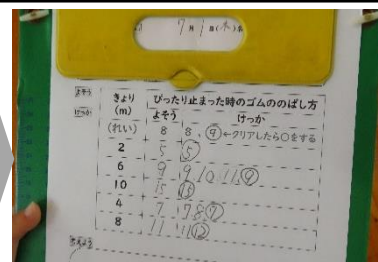 7月1日(木)
よそう
けっか
きょり(m) ぴったり止まった時のゴムののばし方
よそう けっか
(れい) 8 8、⑨←クリアしたら○をする
2 5 ⑤
6 9 9
10 15 ⑮
4 7 7 8 ⑦
8 11 11 ⑫